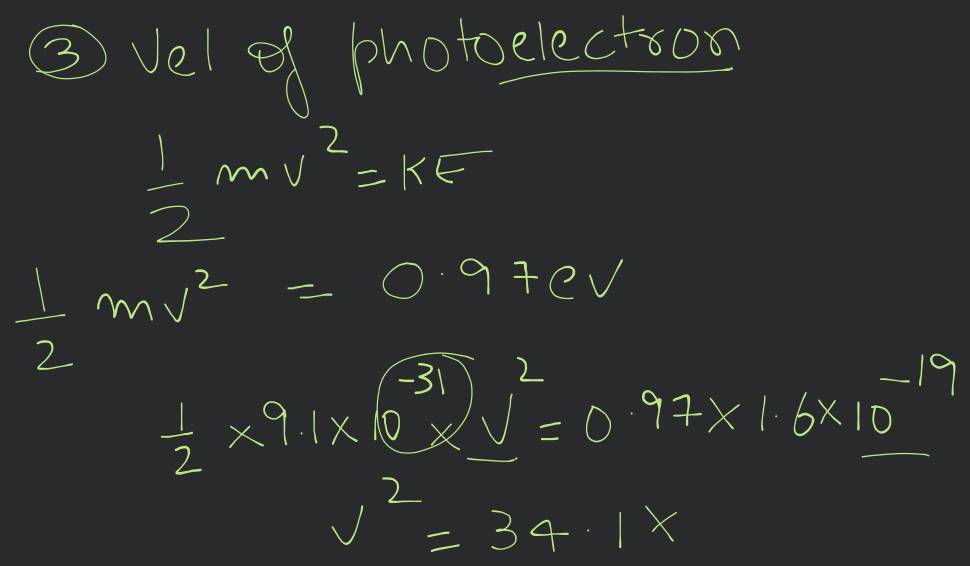 ③ Vel of photoelectron
1/2 mv² = KE
1/2 mv² = 0.97eV
1/2 × 9.1 × 10⁻³¹ × v² = 0.97 × 1.6 × 10⁻¹⁹
v² = 34.1 ×